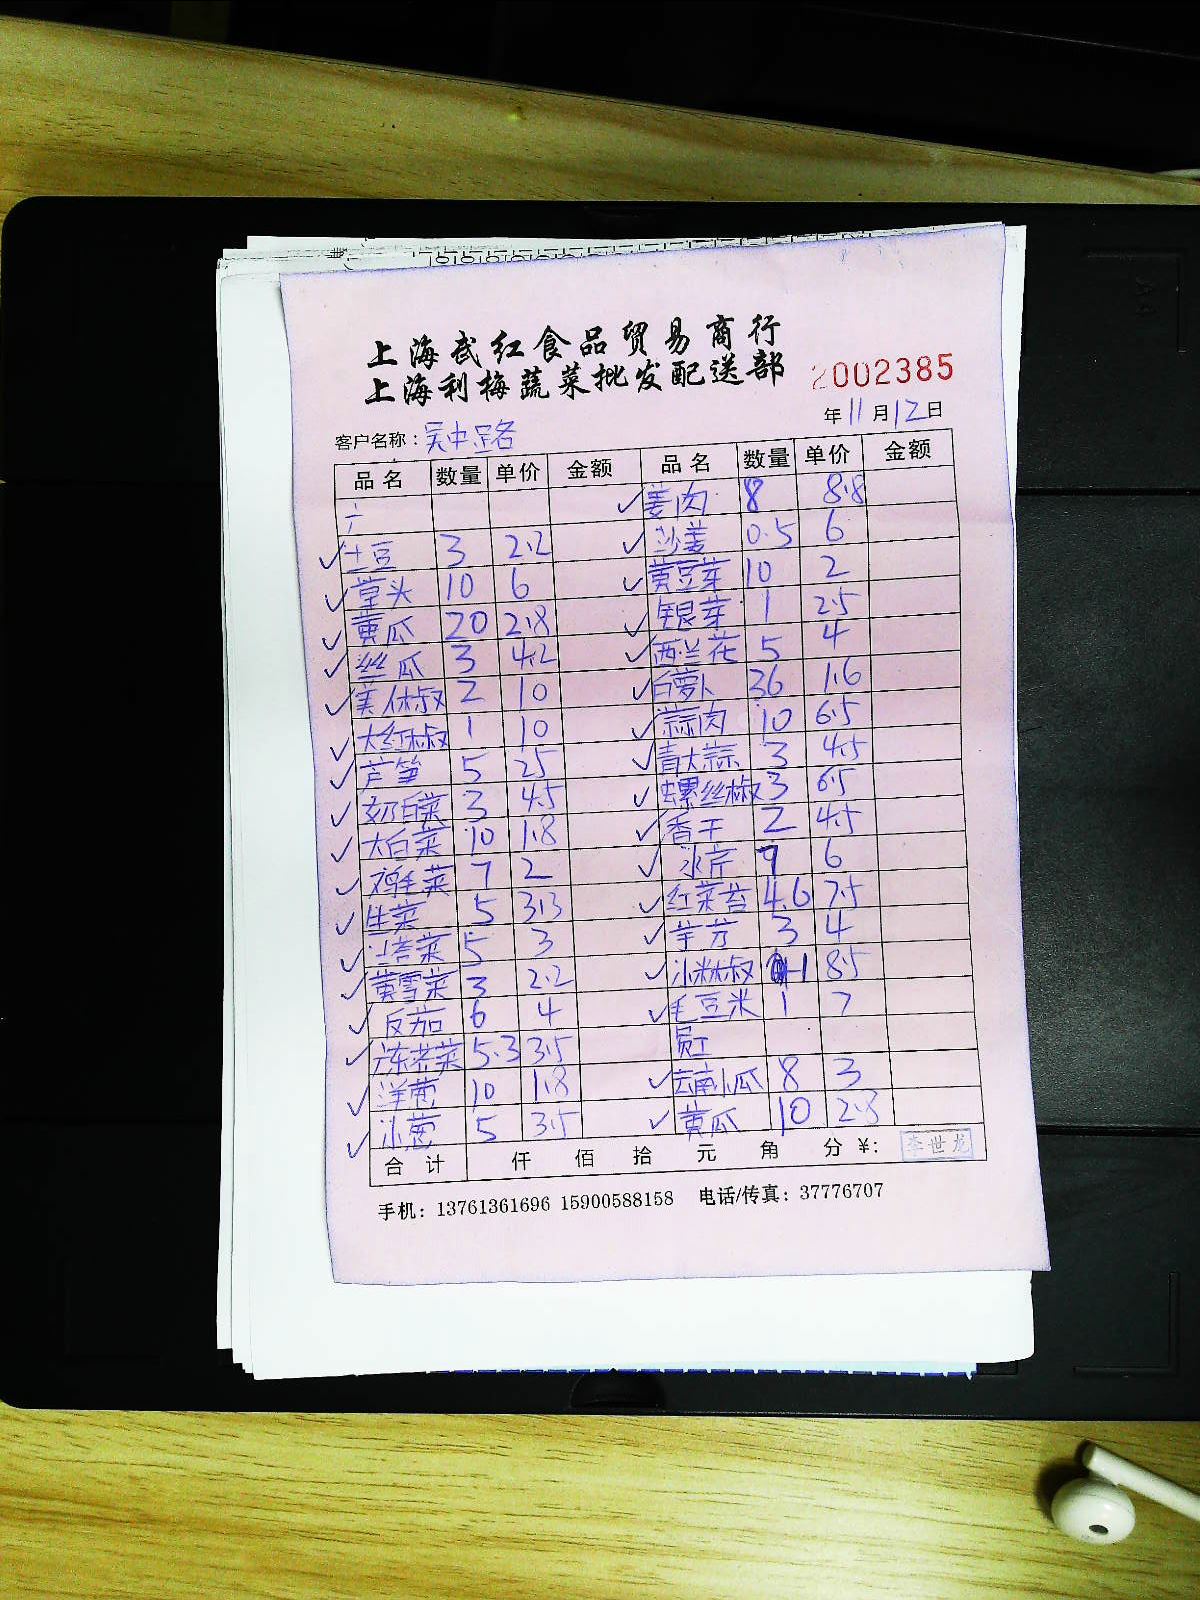 上海武红食品贸易商行
上海利梅蔬菜批发配送部
2002385
年11月12日
客户名称：吴中路
品名 数量 单价 金额 品名 数量 单价 金额
姜肉 8 8.8
土豆 3 2.2 沙姜 0.5 6
10 6 黄豆芽 10 2
黄瓜 20 2.8 银芽 1 2.5
丝瓜 3 4.2 西兰花 5 4
美人椒 2 10 白萝卜 36 1.6
大红椒 1 10 蒜肉 10 6.5
芦笋 5 25 青大蒜 3 4.5
奶白菜 3 4.5 螺丝椒 3 6.5
大白菜 10 1.8 香干 2 4.5
鸡毛菜 7 2 水芹 9 6
生菜 5 3.3 红菜苔 4.6 7.5
塔菜 5 3 芋艿 3 4
黄雪菜 3 2.2 小米椒 1 8.5
反茄 6 4 毛豆米 1 7
冻荠菜 5.3 3.5 员工
洋葱 10 1.8 云南小瓜 8 3
小葱 5 3.5 黄瓜 10 2.8
合计 仟 佰 拾 元 角 分 ¥: 李世龙
手机：13761361696 15900588158 电话/传真：37776707